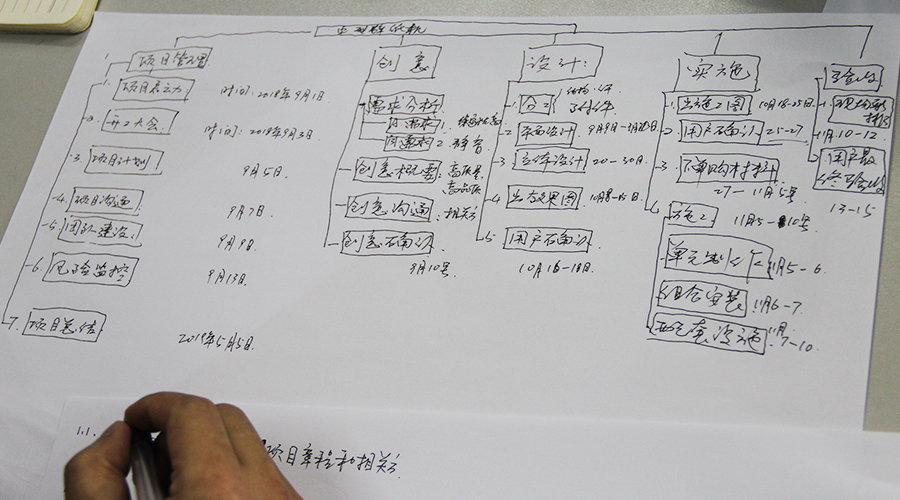 1. 项目管理
1. 项目启动 时间:2018年9月1日
2. 开工大会 时间:2018年9月3日
3. 项目计划 9月5日
4. 项目沟通 9月7日
5. 团队建设 9月9日
6. 风险监控 9月13日
7. 项目总结 2019年5月5日
创意
需求分析
创意概要: 高质量, 高品质
创意沟通 相关方
创意确认
9月10号
设计:
1. 分工
2. 平面设计 9月9日-
3. 立体设计 20-30日
4. 出效果图 10月8-15日
5. 用户确认
10月16-18日
实施
1. 出施工图 10月18-25日
2. 用户确认 25-27
3. 下单购材料
27-11月5号
4. 施工 11月5-10号
单元 11月5-6
组合安装 11月6-7
配套设施 11月7-10
验收
11月10-12
用户最终验收
13-15
1.1.
项目章程和相关方